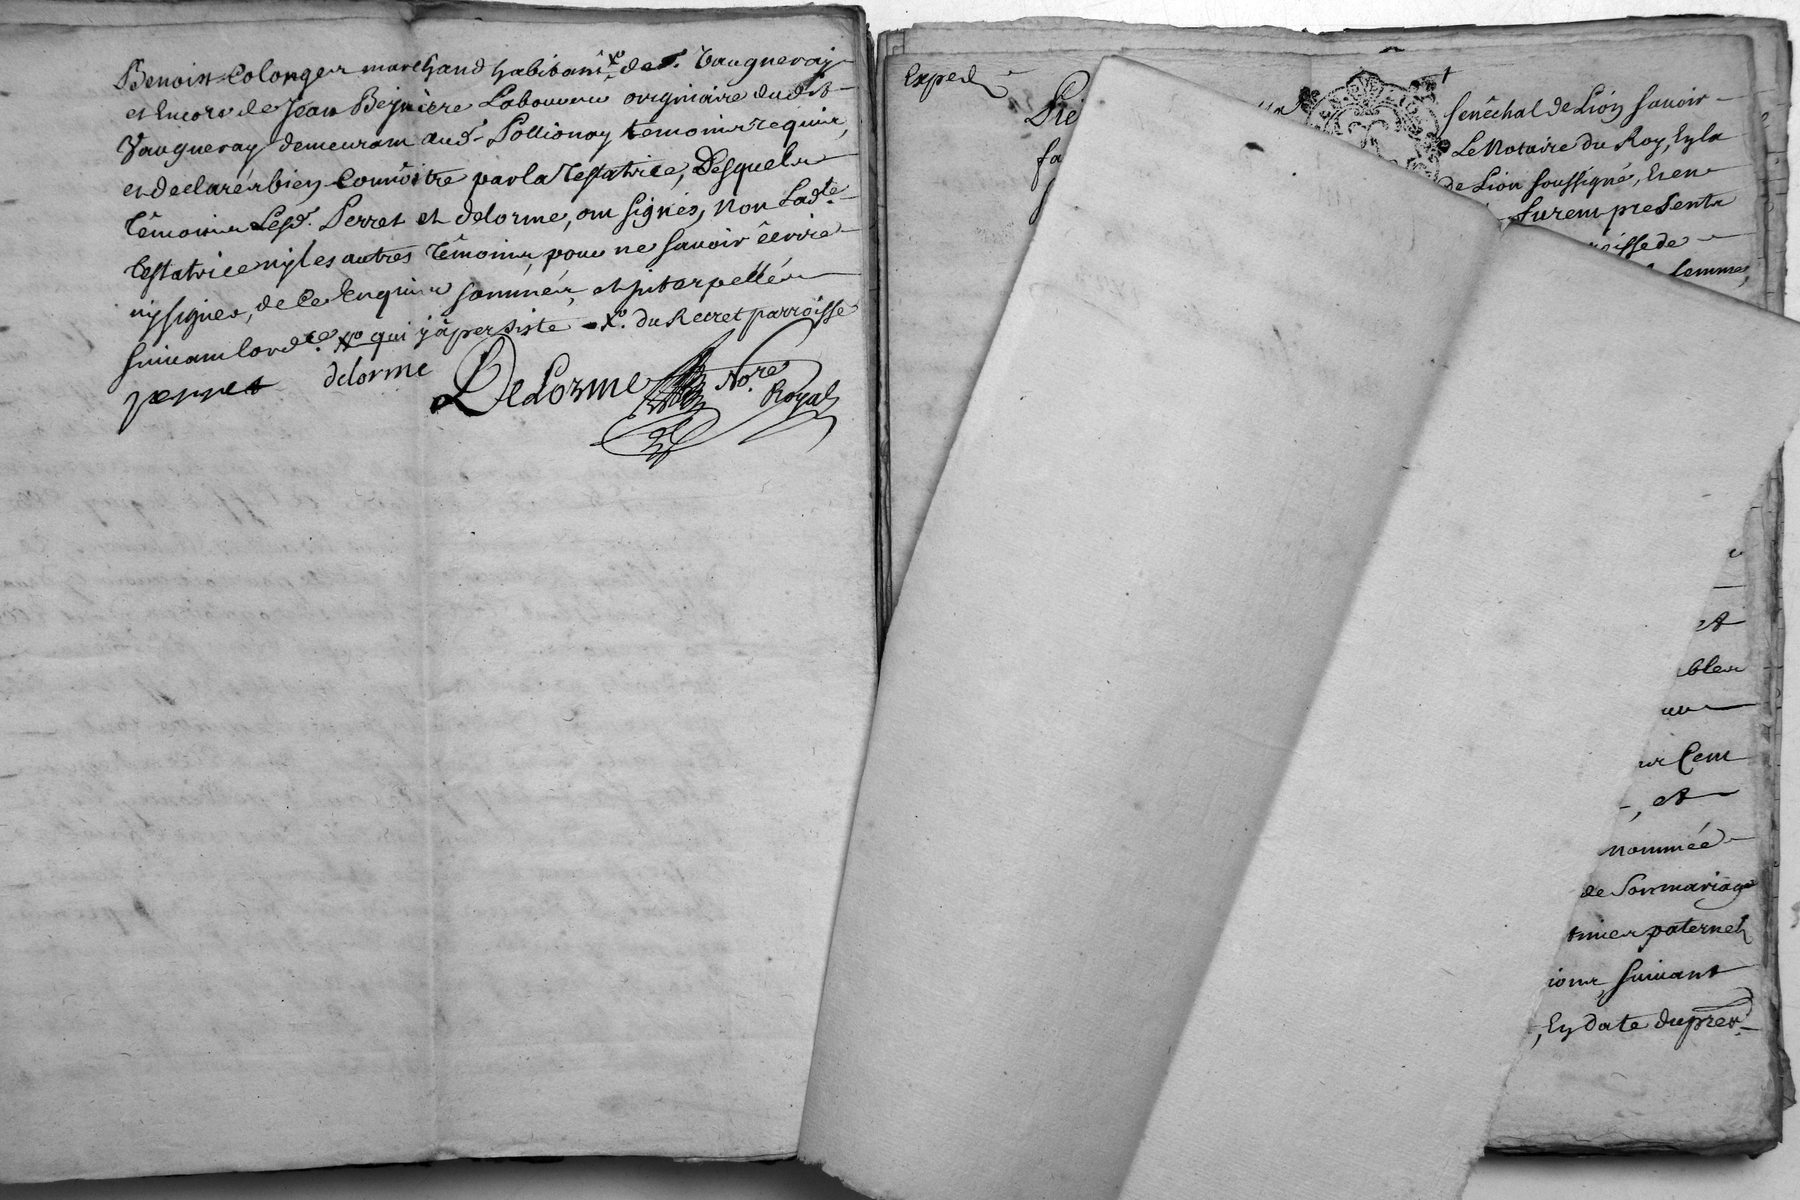 Benoist Colonger marchand habitant xº de St. Vaugneray
et Encore de Jean Bejuierre Laboureur originaire dudt
Vaugneray demeurant aud. Pollionay temoins requis,
et declarés bien Connoitre par la Testatrice, Desquels
Témoins Lesd. Perret et delorme, ont signés, Non Ladte
Testatrice ny les autres Témoins, pour ne savoir écrire
ny signer, de Ce Enquis sommés, et interpellés
suivant lordce. xº qui y a persiste - xº. du Recret parroisse
perret delorme DeLorme Nore Royal
Exped
senéchal de Lion savoir
Le Notaire du Roy, Ey la
de Lion soussigné, Et en
furent presents
oisse de
femme,
et
bles
ur Cent
, et
nommée
de Son mariage
paternel
ions, suivant
, Ey date du prer